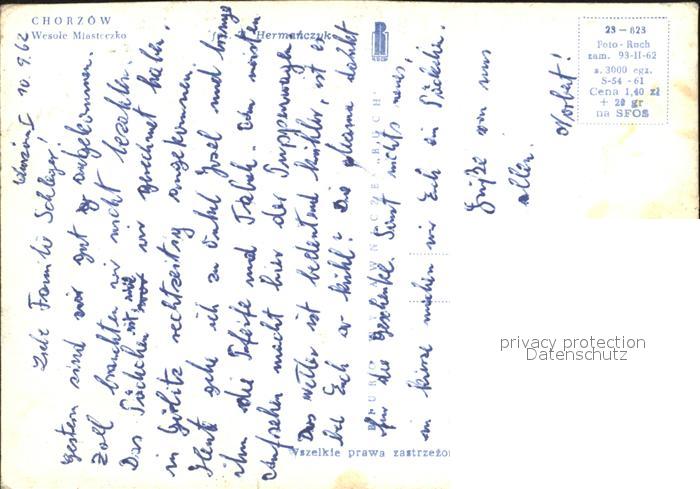 CHORZÓW
Wesołe Miasteczko
fot. Hermańczyk
23 — 623
Foto - Ruch
zam. 93-II-62
n. 3000 egz.
S-54 - 61
Cena 1,40 zł
+ 20 gr
na SFOS
BIURO WYDAWNICZE „RUCH"
Wszelkie prawa zastrzeżon
10.9.62
Liebe Familie Schlegel!
Gestern sind wir gut angekommen.
Zoll brauchten wir nicht bezahlen.
Das Päckchen ist, wie wir gerechnet haben,
in Görlitz rechtzeitig angekommen.
Heute gehe ich zu Onkel Josel und bringe
ihm die Pfeife und Tabak. Am meisten
Aufsehen macht hier der Puppenwagen
Das Wetter ist bedeutend kühler, ist es
bei Euch auch kühl? Die Mama dankt
für die Geschenke. Sonst nichts neues,
in Kürze machen wir Euch ein Päckchen.
Grüße von uns
allen.
Norbert!
privacy protection
Datenschutz